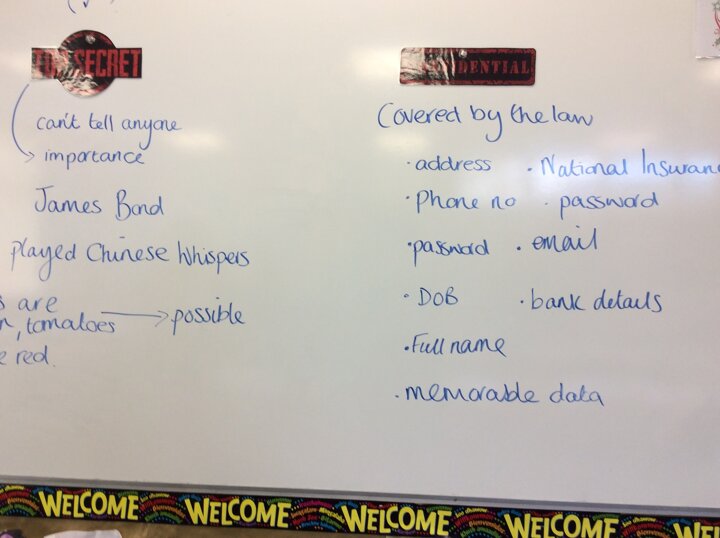 TOP SECRET
can't tell anyone
importance
James Bond
played Chinese Whispers
are
, tomatoes → possible
red.
CONFIDENTIAL
Covered by the law
· address
· Phone no
· password
· DOB
· Full name
· memorable data
· National Insuran
· password
· email
· bank details
WELCOME WELCOME WELCOME WELCOME WELCOME